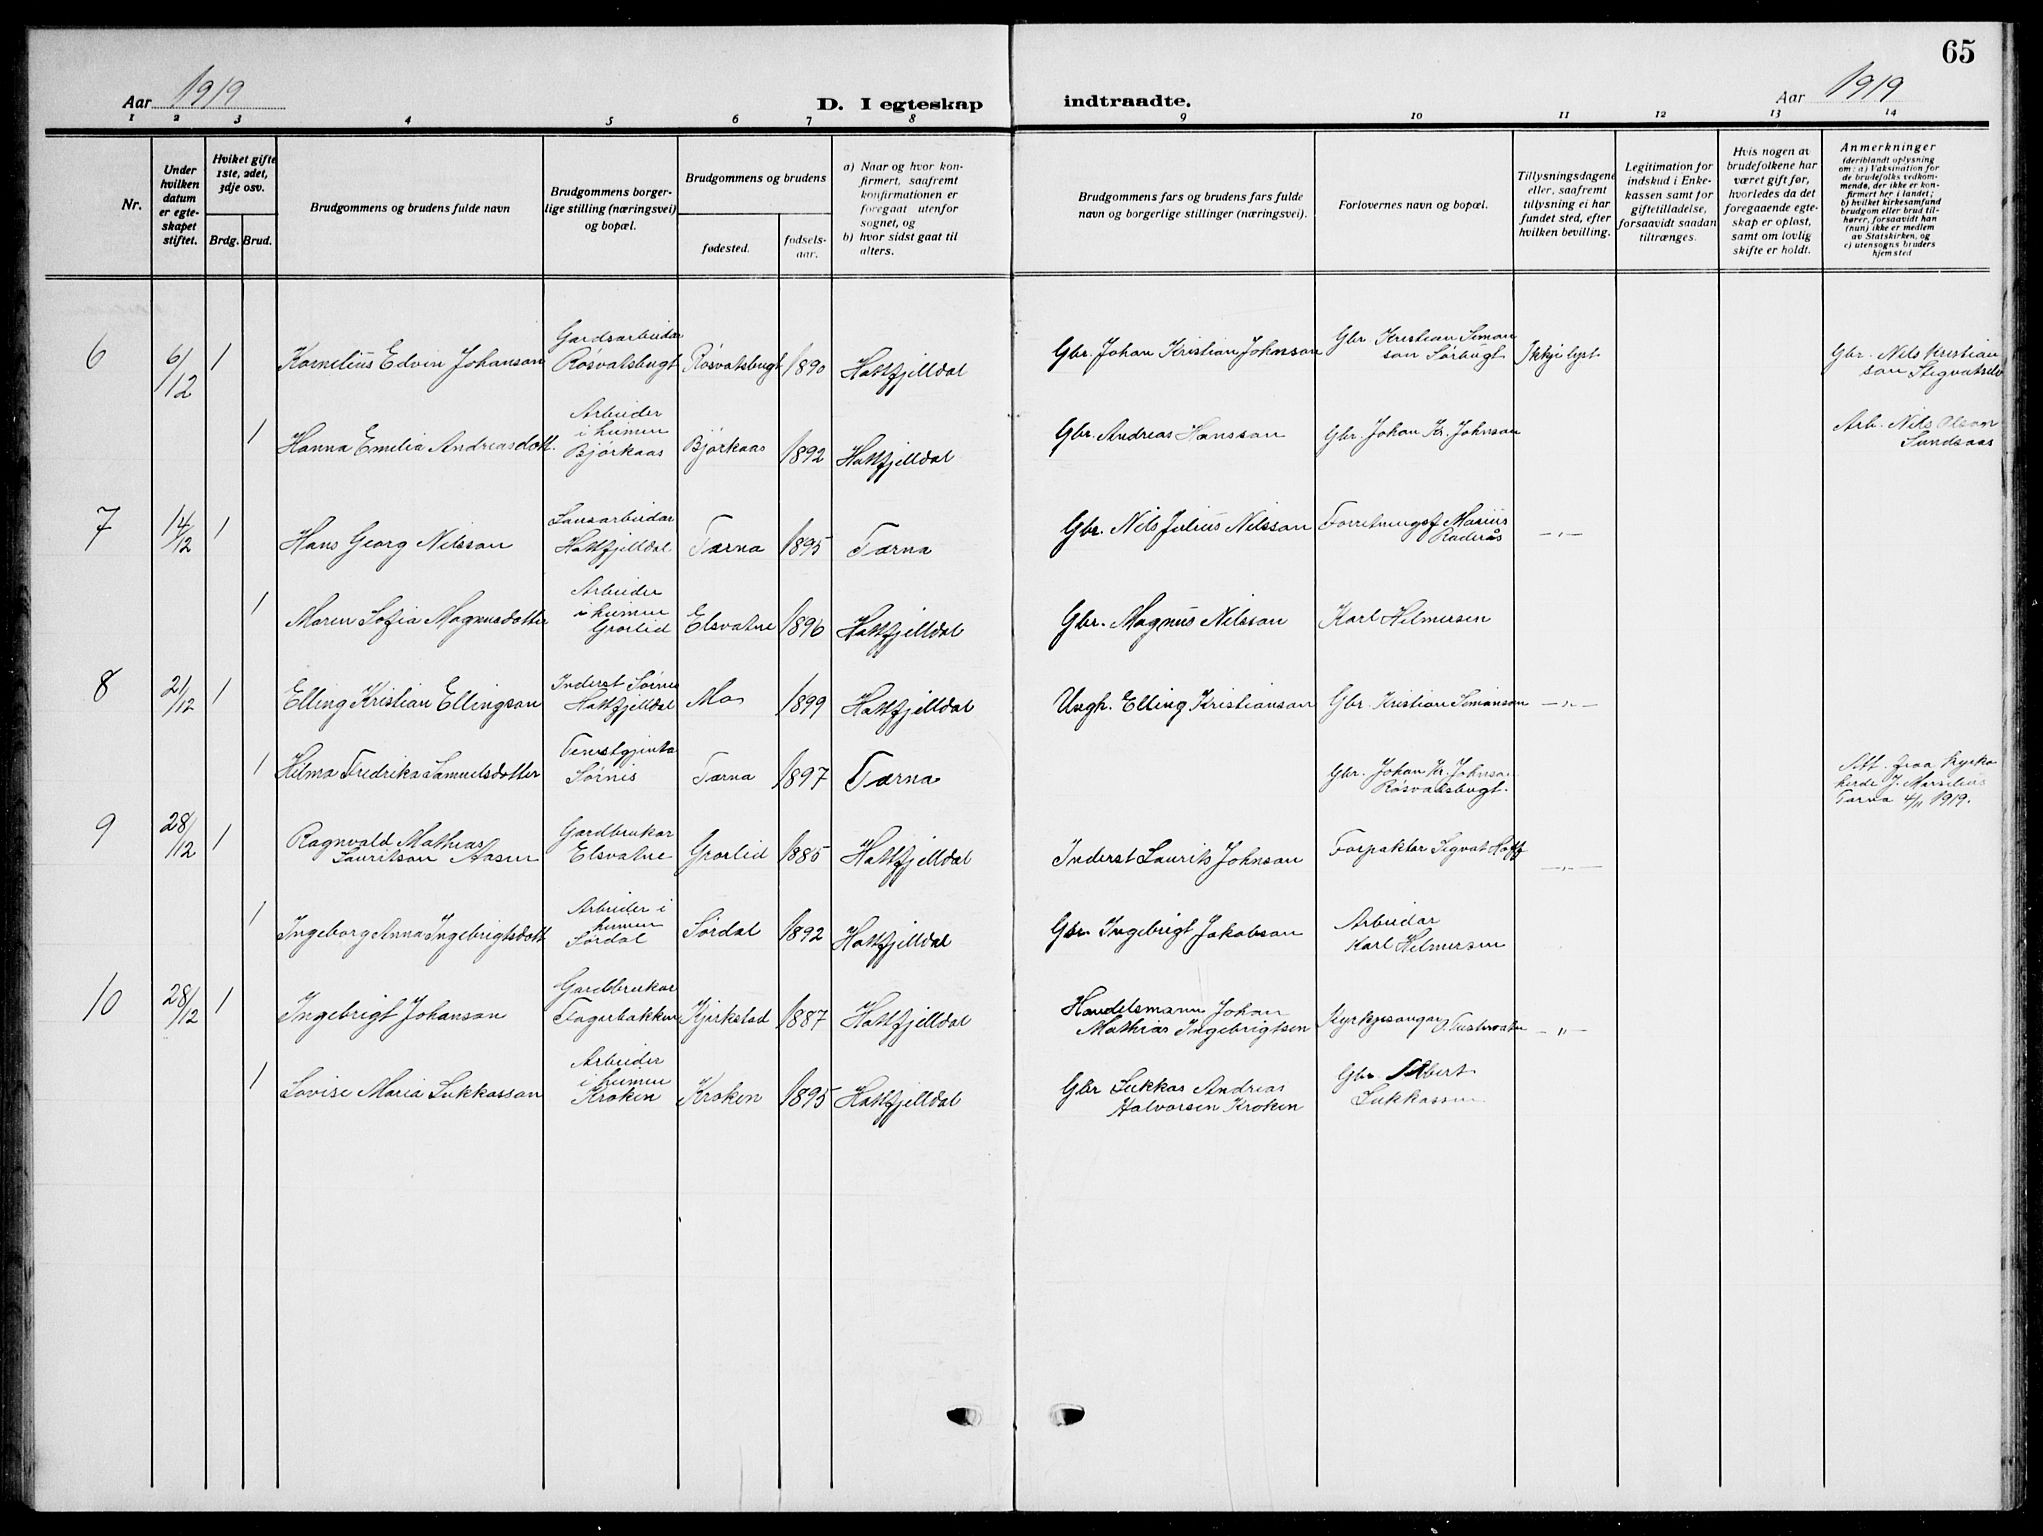 65
Aar 1919
D. I egteskap
indtraadte.
Aar 1919
1 2 3 4 5 6 7 8 9 10 11 12 13 14
Nr.
Under
hvilken
datum
er egte-
skapet
stiftet.
Hvilket gifte
1ste, 2det,
3dje osv.
Brdg. Brud.
Brudgommens og brudens fulde navn
Brudgommens borger-
lige stilling (næringsvei)
og bopæl.
Brudgommens og brudens
fødested.
fødsels-
aar.
a) Naar og hvor kon-
firmert, saafremt
konfirmationen er
foregaat utenfor
sognet, og
b) hvor sidst gaat til
alters.
Brudgommens fars og brudens fars fulde
navn og borgerlige stillinger (næringsvei).
Forlovernes navn og bopæl.
Tillysningsdagene
eller, saafremt
tillysning ei har
fundet sted, efter
hvilken bevilling.
Legitimation for
indskud i Enke-
kassen samt for
giftetilladelse,
forsaavidt saadan
tiltrænges.
Hvis nogen av
brudefolkene har
været gift før,
hvorledes da det
foregaaende egte-
skap er opløst,
samt om lovlig
skifte er holdt.
Anmerkninger
(deriblandt oplysning
om: a) Vaksination for
de brudefolks vedkom-
mende, der ikke er kon-
firmert her i landet;
b) hvilket kirkesamfund
brudgom eller brud til-
hører, forsaavidt han
(hun) ikke er medlem
av Statskirken, og
c) utensogns bruders
hjemsted
6 6/12 1 Kornelius Edvin Johanson Gardsarbeidar Røsvatsbugt Røsvatsbugt 1890 Hattfjelldal Gbr. Johan Kristian Johnsson Gbr. Kristian Simon
son Sørbugt Ikkje lyst Gbr. Nils Kristian
son
1 Hanna Emilia Andreasdott. Arbeider
i heimen
Bjørkaas Bjørkaas 1892 Hattfjelldal Gbr. Andreas Hansson Gbr. Johan Kr. Johnson Arb. Nils Olson
Sundsaas
7 14/12 1 Hans Georg Nilsson Lausarbeidar
Hattfjelldal Tærna 1895 Tærna Gbr. Nils Julius Nilsson Forretningsf Marius
—„—
1 Maren Sofia Magnusdotter Arbeider
i heimen
Grorlid Elsvatne 1896 Hattfjelldal Gbr. Magnus Nilsson Karl Hilmersen
8 21/12 1 Elling Kristian Ellingson Inderst Sørnes
Hattfjelldal Mo 1899 Hattfjelldal Ungk. Elling Kristianson Gbr. Kristian Simonson —„—
1 Hilma Fredrika Samuelsdotter Tenestgjenta
Sørnis Tærna 1897 Tærna Gbr. Johan Kr. Johnson
Røsvatsbugt. Att. fraa kyrko
herde J. Marselius
Tærna 4/11 1919.
9 28/12 1 Ragnvald Mathias
Lauritson Aasen Gardbrukar
Elsvatne Grorlid 1885 Hattfjelldal Inderst Laurits Johnson Forpaktar Sigvat Hattf —„—
1 Ingeborg Anna Ingebrigtsdott Arbeider i
heimen
Sørdal Sørdal 1892 Hattfjelldal Gbr Ingebrigt Jakobson Arbeidar
Karl Hilmersen
10 28/12 1 Ingebrigt Johanson Gardbrukar
Fagerbakken Kjerkstad 1887 Hattfjelldal Handelsmann Johan
Mathias Ingebrigtsen Kyrkjesongar —„—
1 Lovise Maria Lukkasson Arbeider
i heimen
Kroken Kroken 1895 Hattfjelldal Gbr Lukkas Andreas
Halvorsen Kroken Gbr Albert
Lukkassen